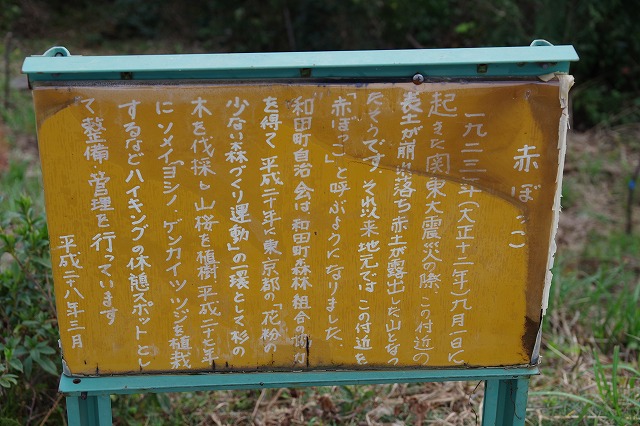 赤ぼっこ
一九二三年(大正十二年)九月一日に
起きた関東大震災の際、この付近の
表土が崩れ落ち赤土が露出した山となっ
たそうです。それ以来地元では、この付近を
「赤ぼっこ」と呼ぶようになりました。
和田町自治会は和田町森林組合の協力
を得て平成二十年に東京都の「花粉の
少ない森づくり運動」の一環として杉の
木を伐採し山桜を植樹、平成二十七年
にソメイヨシノ、ゲンカイツツジを植栽
するなどハイキングの休憩スポットとし
て整備、管理を行っています
平成二八年三月